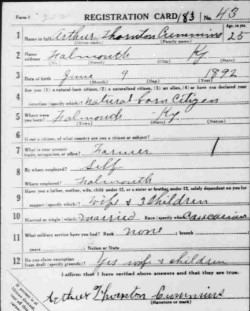 Form 1 REGISTRATION CARD 83 No. 43
1 Name in full Arthur Thornton Cummins Age, in yrs. 25
(Given name) (Family name)
2 Home address Falmouth Ky
3 Date of birth June 9 1892
(Month) (Day) (Year)
4 Are you (1) a natural-born citizen, (2) a naturalized citizen, (3) an alien, (4) or have you declared your intention (specify which)? Natural born Citizen
5 Where were you born? Falmouth Ky
6 If not a citizen, of what country are you a citizen or subject?
7 What is your present trade, occupation, or office? Farmer 1
8 By whom employed? Self
Where employed? Falmouth
9 Have you a father, mother, wife, child under 12, or a sister or brother under 12, solely dependent on you for support (specify which)? Wife & 2 Children
10 Married or single (which)? Married Race (specify which)? Caucasian
11 What military service have you had? Rank none ; branch
years Nation or State
12 Do you claim exemption from draft (specify grounds)? Yes wife & children
I affirm that I have verified above answers and that they are true.
Arthur Thornton Cummins
(Signature or mark)